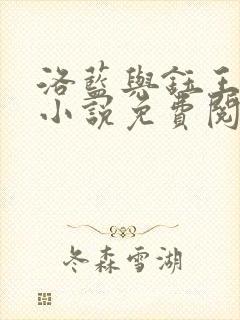 洛藍與鈺王
小說免費閱
冬森雪湖